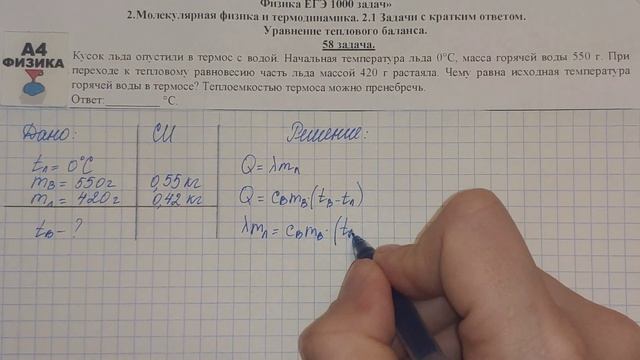 Физика ЕГЭ 1000 задач»
2.Молекулярная физика и термодинамика. 2.1 Задачи с кратким ответом.
Уравнение теплового баланса.
58 задача.
А4
ФИЗИКА
Кусок льда опустили в термос с водой. Начальная температура льда 0°С, масса горячей воды 550 г. При
переходе к тепловому равновесию часть льда массой 420 г растаяла. Чему равна исходная температура
горячей воды в термосе? Теплоемкостью термоса можно пренебречь.
Ответ:__________ °С.
Дано: СИ Решение:
tл = 0°С Q = λmл
mв = 550г 0,55 кг Q = cвmв·(tв-tл)
mл = 420г 0,42 кг
tв - ? λmл = cвmв·(tв